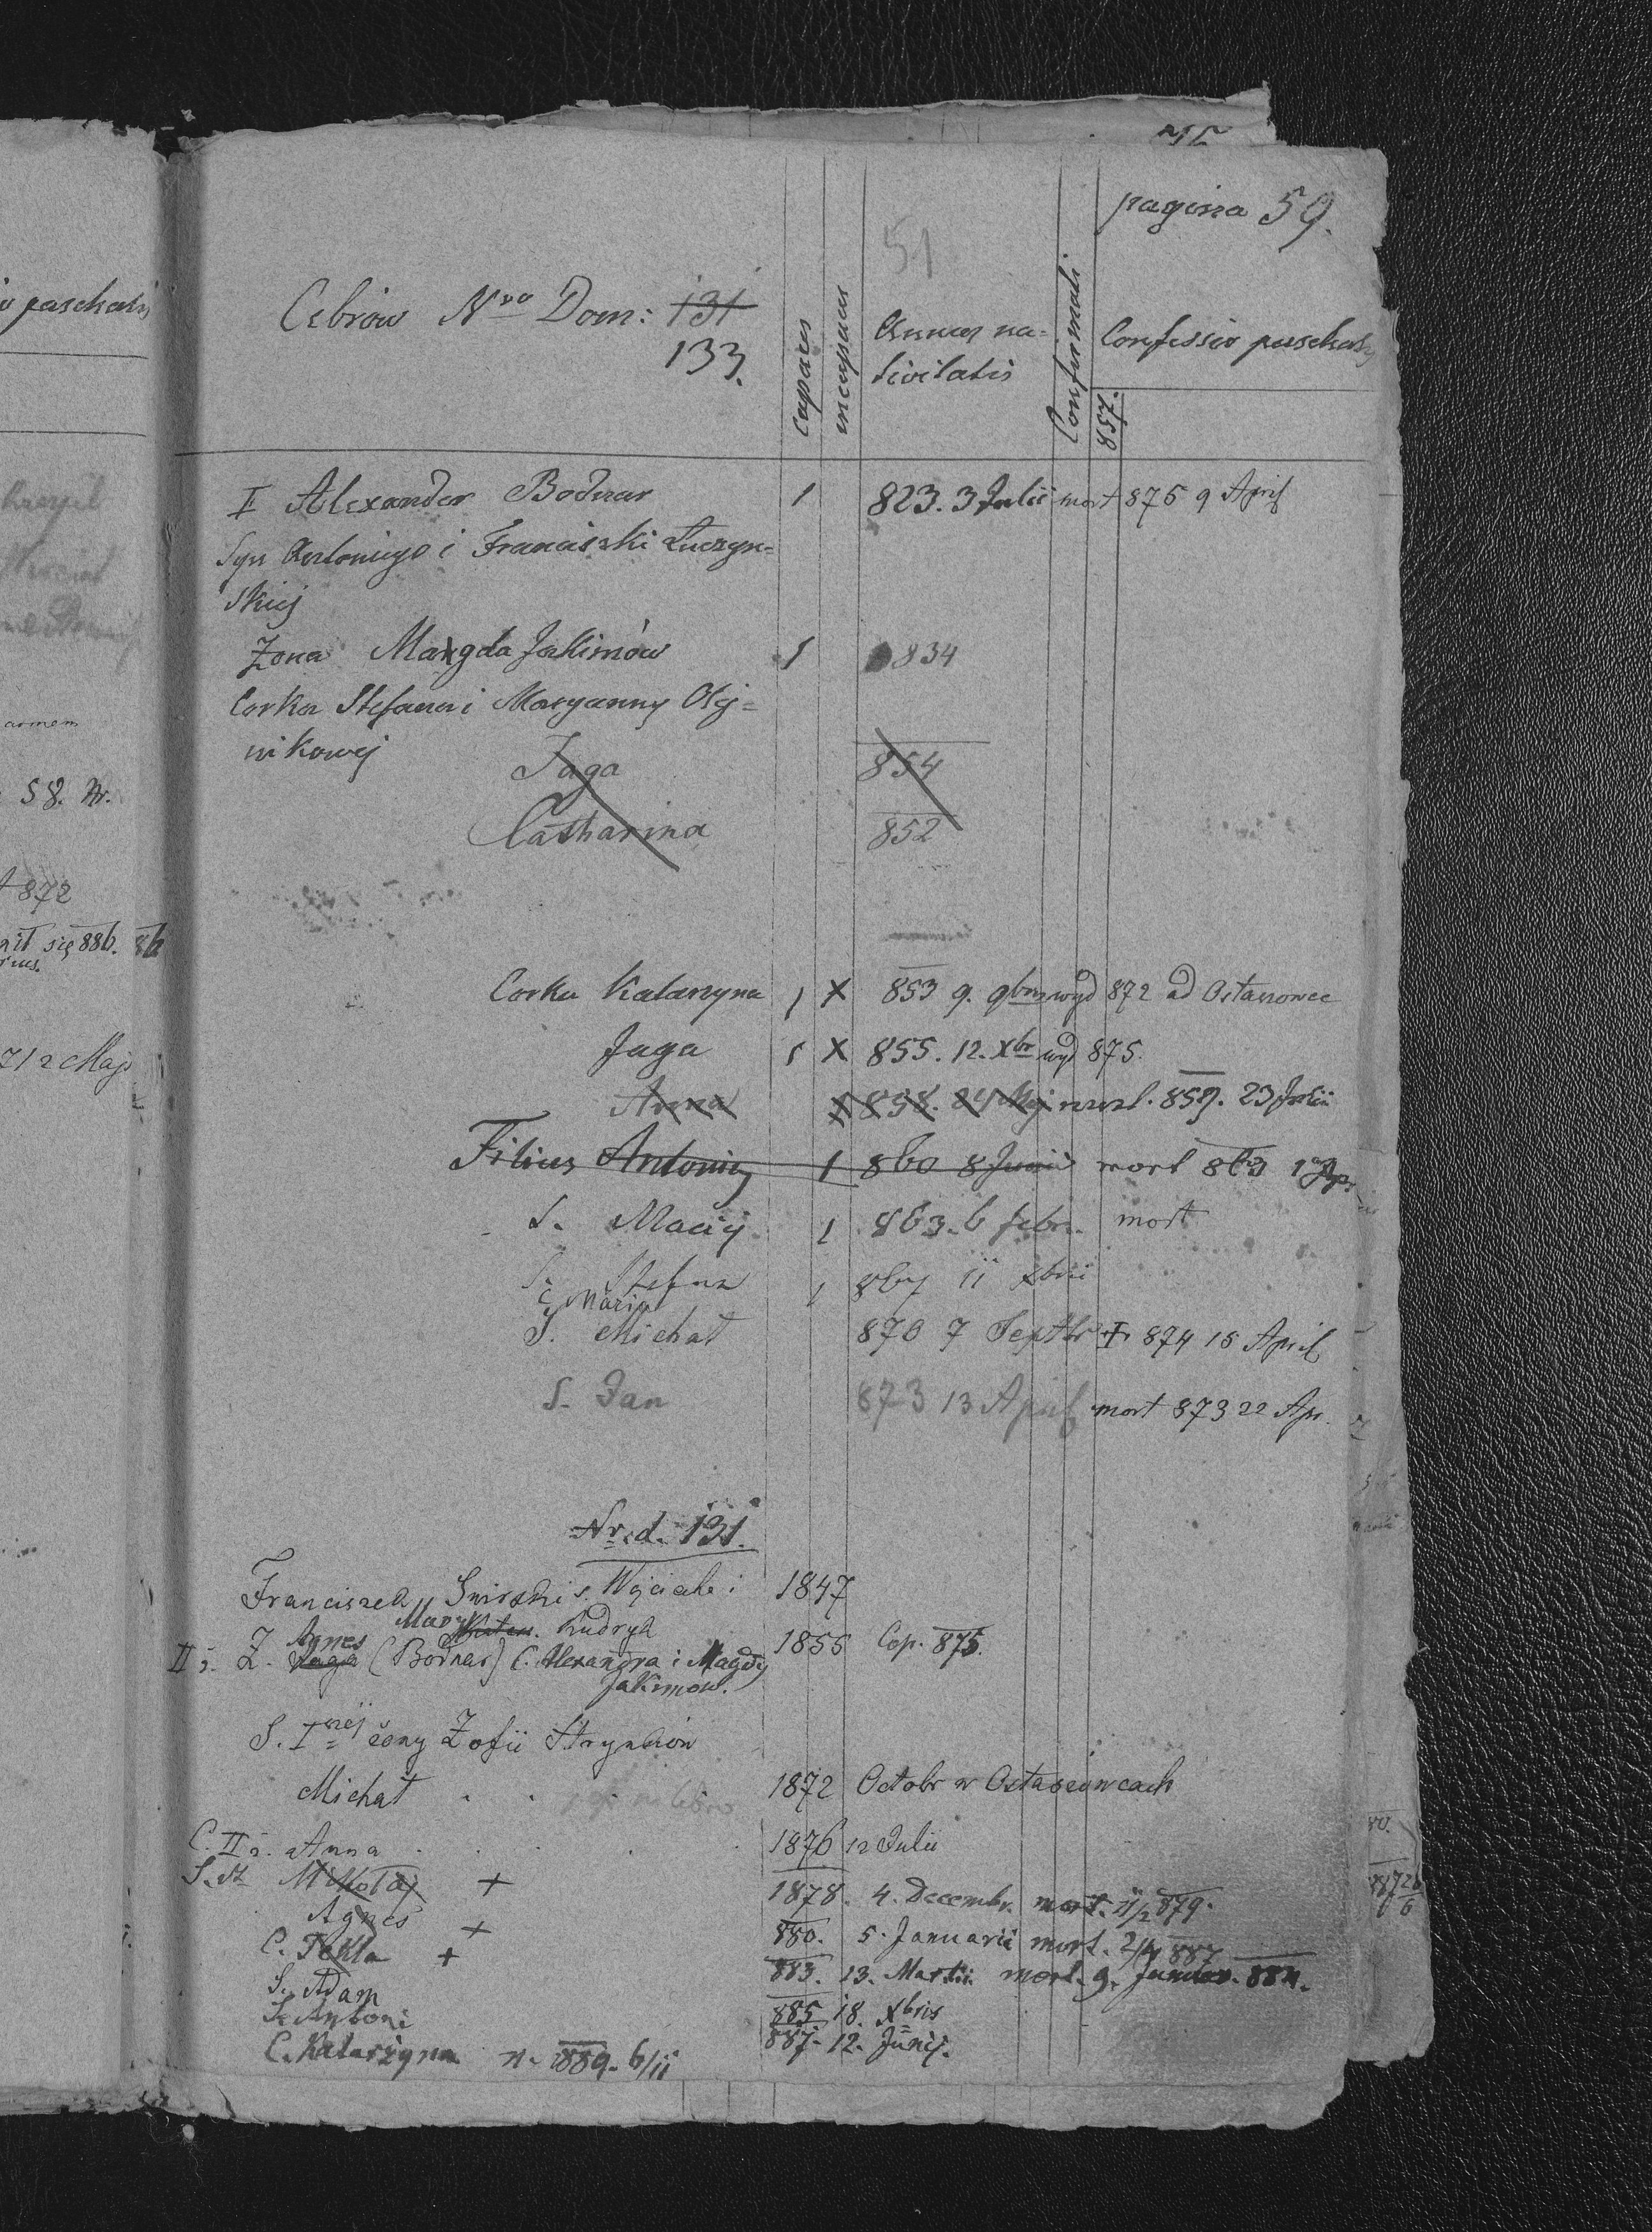 pagina 59.
51
Cebrow Nro Dom: 131
133.
Capaces
incapaces
Annus na=
tivitatis
Confirmati
Confessio paschalis
857.
I Alexander Bodnar 1 823. 3 Julii mort 875 9 April
Syn Antoniego i Franciszki Łuczyn=
skiej
Żona Magda Jakimów 1 834
Corka Stefana i Maryanny Olij=
nikowej
Jaga 854
Catharina 852
Corka Katarzyna 1 X 853 9. 9bris wyd 872 ad Ostasowce
Jaga 1 X 855. 12. Xbr wyd 875.
Anna 1 858. 24 Maj mort. 859. 23 Julii
Filius Antoniy 1 860 8 Junii mort 863 1 Apr
S. Maciij 1 863. 6 febr. mort
S. Stefan 1 867 11 xbrii
C. Maria
S. Michał 870 7 Septbr + 874 15 April
S. Jan 873 13 April mort 873 22 Apr.
Nr. d. 131.
Franciszek Smirski s. Wojciecha i 1847
Mary Kudryk
Agnes
II ż. Ż. Jaga (Bodnar) C. Alexandra i Magdy 1855 Cop. 875.
Jakimow.
S. Iszej żony Zofii Hrynków
Michał . . 1872 Octobr w Ostaszowcach
C. II ż. Anna . . . 1876 12 Julii
S. Mikołaj + 1878. 4. Decembr. mort. 11/2 879.
Agnes + 880. 5. Januarii mort. 2/4 887
C. Tekla + 883. 13. Martii mort. 9. Januar. 884.
S. Adam 885 18. Xbris
S. Antoni 887. 12. Junij.
C. Katarzyna n. 1889. 6/11
paschalis
58. Nr.
872
się 886.
2 Maj